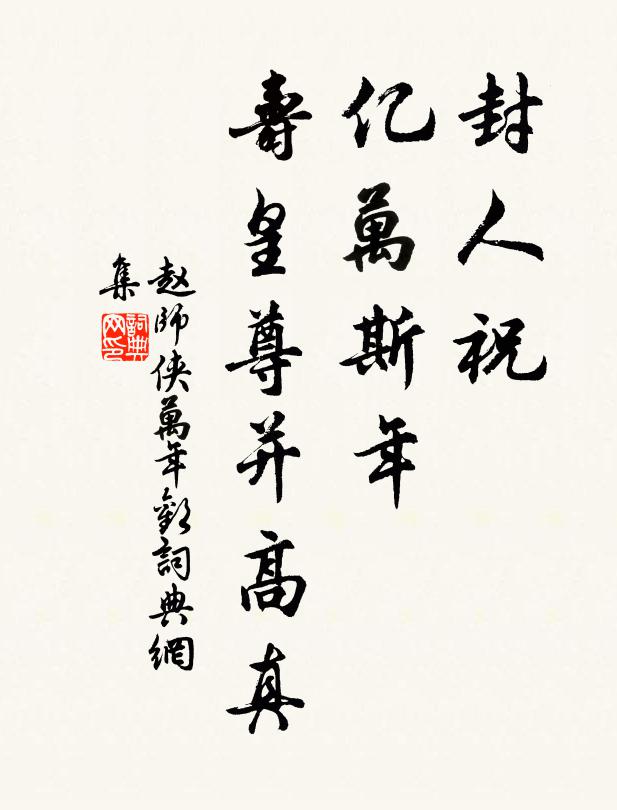 封人祝
亿萬斯年
壽皇尊并高真
赵師侠萬年歡詞典網
集
詞典
网印